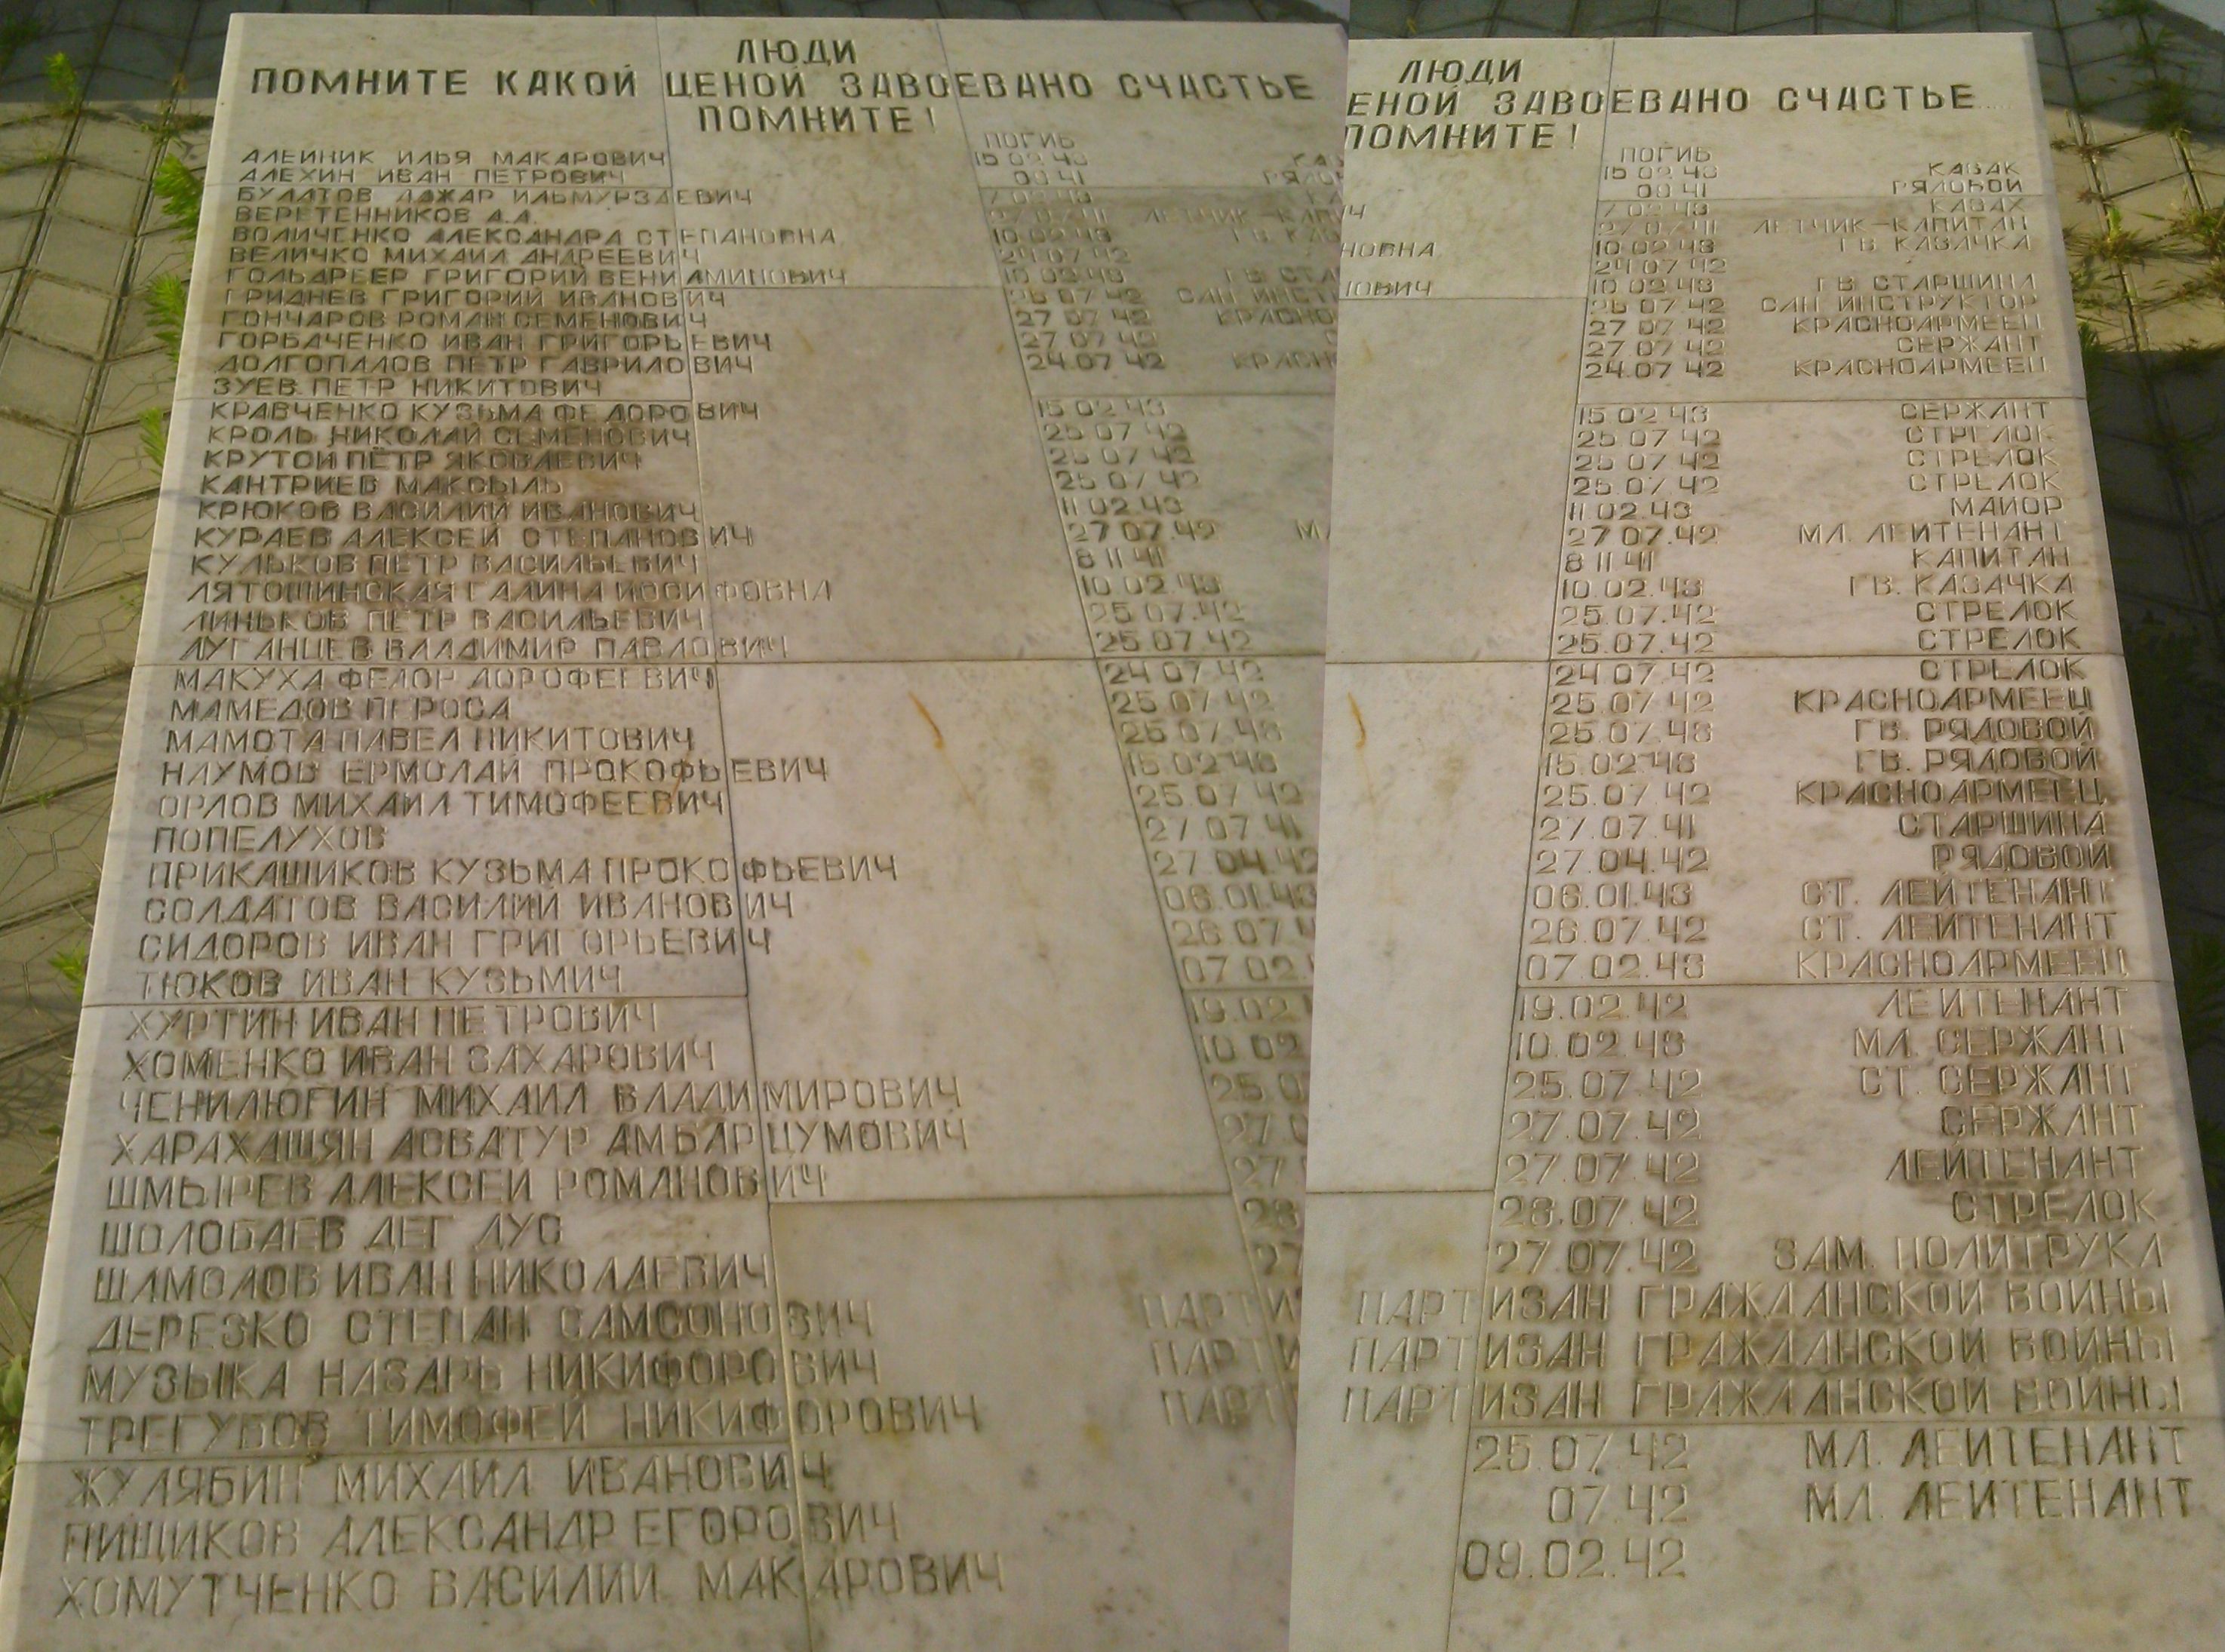 ЛЮДИ
ПОМНИТЕ КАКОЙ ЦЕНОЙ ЗАВОЕВАНО СЧАСТЬЕ
ПОМНИТЕ!
ПОГИБ
АЛЕЙНИК ИЛЬЯ МАКАРОВИЧ 15 02 43 КАЗАК
АЛЕХИН ИВАН ПЕТРОВИЧ 09 41 РЯДОВОЙ
БУЛАТОВ ДАЖАР ИЛЬМУРЗАЕВИЧ 7 02 43 КАЗАХ
ВЕРЕТЕННИКОВ А.А. 27 07 41 ЛЕТЧИК-КАПИТАН
ВОЛИЧЕНКО АЛЕКСАНДРА СТЕПАНОВНА 10 02 43 ГВ. КАЗАЧКА
ВЕЛИЧКО МИХАИЛ АНДРЕЕВИЧ 24 07 42
ГОЛЬДРЕЕР ГРИГОРИЙ ВЕНИАМИНОВИЧ 10 02 43 ГВ СТАРШИНА
ГРИДНЕВ ГРИГОРИЙ ИВАНОВИЧ 26 07 42 САН ИНСТРУКТОР
ГОНЧАРОВ РОМАН СЕМЕНОВИЧ 27 07 42 КРАСНОАРМЕЕЦ
ГОРБАЧЕНКО ИВАН ГРИГОРЬЕВИЧ 27 07 42 СЕРЖАНТ
ДОЛГОПАЛОВ ПЕТР ГАВРИЛОВИЧ 24.07 42 КРАСНОАРМЕЕЦ
ЗУЕВ ПЕТР НИКИТОВИЧ
КРАВЧЕНКО КУЗЬМА ФЕДОРОВИЧ 15 02 43 СЕРЖАНТ
КРОЛЬ НИКОЛАЙ СЕМЕНОВИЧ 25 07 42 СТРЕЛОК
КРУТОЙ ПЁТР ЯКОВЛЕВИЧ 25 07 42 СТРЕЛОК
КАНТРИЕВ МАКСЫЛЬ 25 07 42 СТРЕЛОК
КРЮКОВ ВАСИЛИЙ ИВАНОВИЧ 11 02 43 МАЙОР
КУРАЕВ АЛЕКСЕЙ СТЕПАНОВИЧ 27 07.42 МЛ. ЛЕЙТЕНАНТ
КУЛЬКОВ ПЕТР ВАСИЛЬЕВИЧ 8 11 41 КАПИТАН
ЛЯТОШИНСКАЯ ГАЛИНА ИОСИФОВНА 10.02.43 ГВ. КАЗАЧКА
ЛИНЬКОВ ПЕТР ВАСИЛЬЕВИЧ 25.07.42 СТРЕЛОК
ЛУГАНЦЕВ ВЛАДИМИР ПАВЛОВИЧ 25.07.42 СТРЕЛОК
МАКУХА ФЕДОР ДОРОФЕЕВИЧ 24 07.42 СТРЕЛОК
МАМЕДОВ ПЕРОСА 25.07 42 КРАСНОАРМЕЕЦ
МАМОТА ПАВЕЛ НИКИТОВИЧ 25.07.43 ГВ. РЯДОВОЙ
НАУМОВ ЕРМОЛАЙ ПРОКОФЬЕВИЧ 15.02.43 ГВ. РЯДОВОЙ
ОРЛОВ МИХАИЛ ТИМОФЕЕВИЧ 25.07 42 КРАСНОАРМЕЕЦ
ПОПЕЛУХОВ 27.07.41 СТАРШИНА
ПРИКАШИКОВ КУЗЬМА ПРОКОФЬЕВИЧ 27.04.42 РЯДОВОЙ
СОЛДАТОВ ВАСИЛИЙ ИВАНОВИЧ 06.01.43 СТ. ЛЕЙТЕНАНТ
СИДОРОВ ИВАН ГРИГОРЬЕВИЧ 26.07.42 СТ. ЛЕЙТЕНАНТ
ТЮКОВ ИВАН КУЗЬМИЧ 07.02.43 КРАСНОАРМЕЕЦ
ХУРТИН ИВАН ПЕТРОВИЧ 19.02.42 ЛЕЙТЕНАНТ
ХОМЕНКО ИВАН ЗАХАРОВИЧ 10.02.43 МЛ. СЕРЖАНТ
ЧЕНИЛЮГИН МИХАИЛ ВЛАДИМИРОВИЧ 25.07.42 СТ. СЕРЖАНТ
ХАРАХАШЯН АСВАТУР АМБАРЦУМОВИЧ 27.07.42 СЕРЖАНТ
ШМЫРЕВ АЛЕКСЕЙ РОМАНОВИЧ 27.07.42 ЛЕЙТЕНАНТ
ШОЛОБАЕВ ДЕГ ДУС 26.07.42 СТРЕЛОК
ШАМОЛОВ ИВАН НИКОЛАЕВИЧ 27.07.42 ЗАМ. ПОЛИТРУКА
ДЕРЕЗКО СТЕПАН САМСОНОВИЧ ПАРТИЗАН ГРАЖДАНСКОЙ ВОЙНЫ
МУЗЫКА НАЗАРЬ НИКИФОРОВИЧ ПАРТИЗАН ГРАЖДАНСКОЙ ВОЙНЫ
ТРЕГУБОВ ТИМОФЕЙ НИКИФОРОВИЧ ПАРТИЗАН ГРАЖДАНСКОЙ ВОЙНЫ
ЖУЛЯБИН МИХАИЛ ИВАНОВИЧ 25.07.42 МЛ. ЛЕЙТЕНАНТ
ПИЩИКОВ АЛЕКСАНДР ЕГОРОВИЧ 07.42 МЛ. ЛЕЙТЕНАНТ
ХОМУТЧЕНКО ВАСИЛИЙ МАКАРОВИЧ 09.02.42